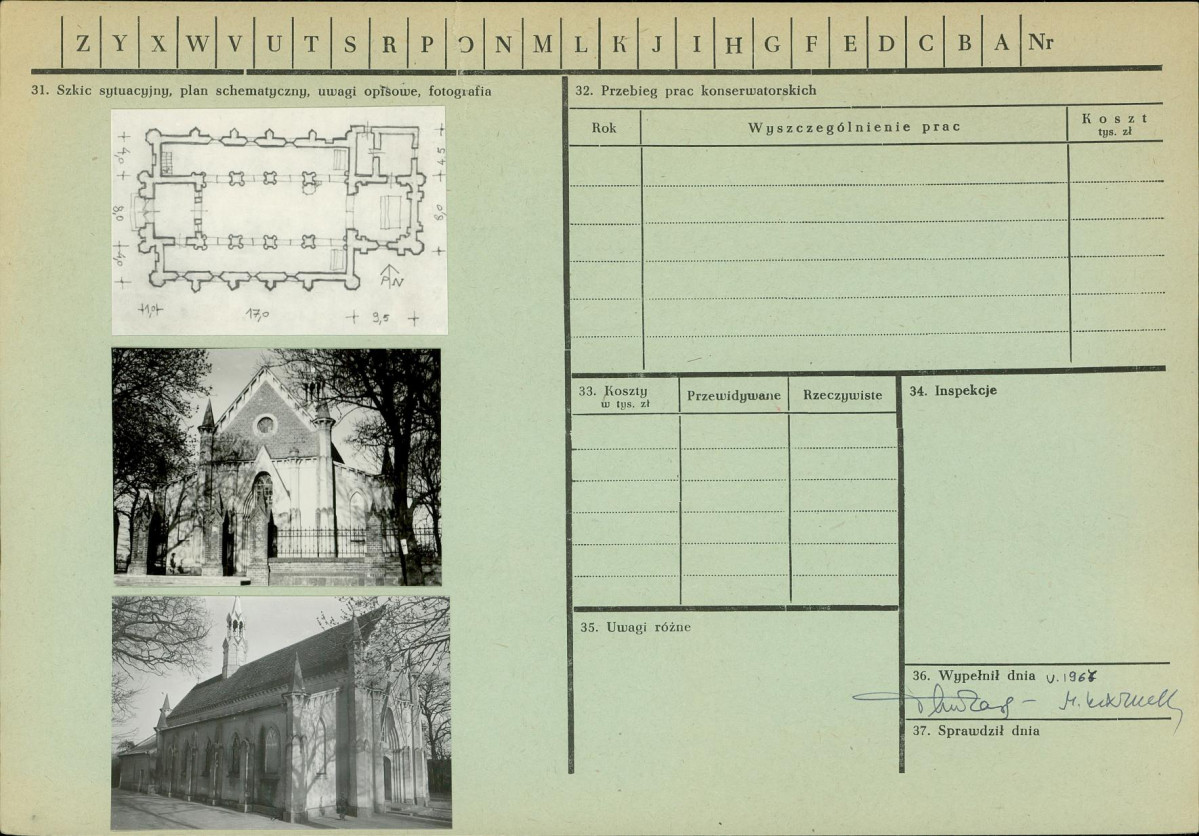 Z Y X W V U T S R P O N M L K J I H G F E D C B A Nr
31. Szkic sytuacyjny, plan schematyczny, uwagi opisowe, fotografia
4,0
8,0
4,0
4,5
8,0
PN
1,0
17,0
9,5
32. Przebieg prac konserwatorskich
Rok
Wyszczególnienie prac
Koszt
tys. zł
33. Koszty
w tys. zł
Przewidywane
Rzeczywiste
34. Inspekcje
35. Uwagi różne
36. Wypełnił dnia V. 1967
37. Sprawdził dnia